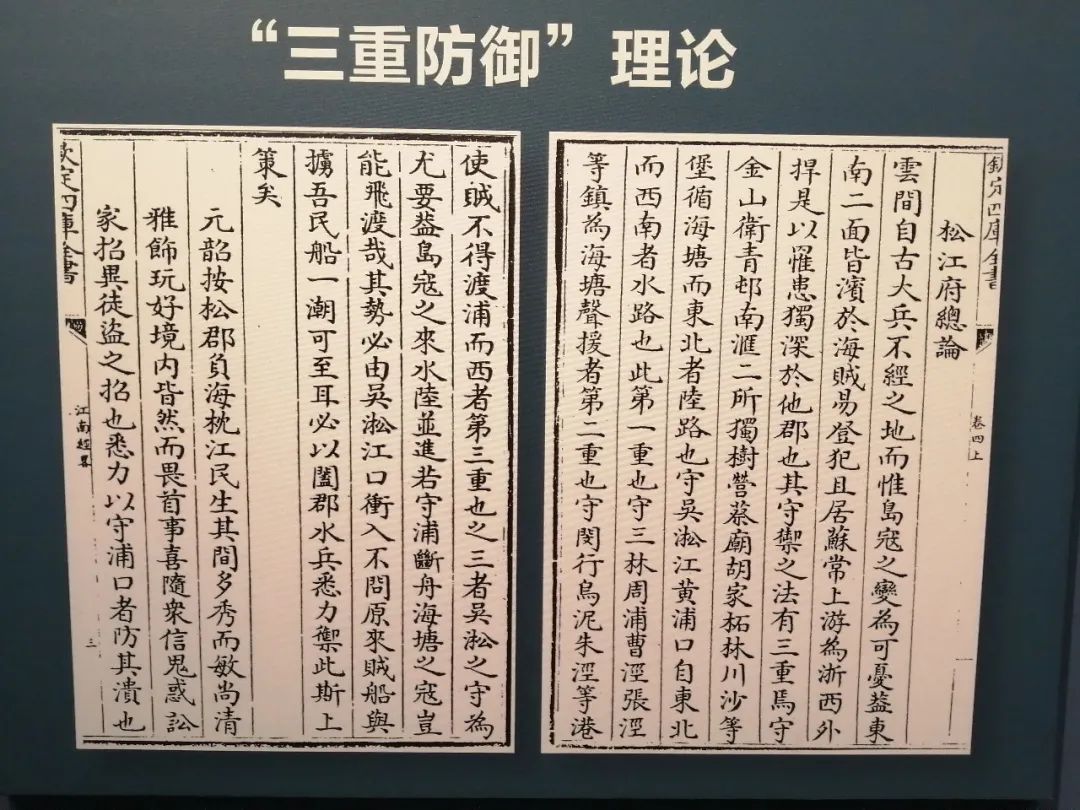 “三重防御”理论
欽定四庫全書
卷四上
松江府總論
雲間自古大兵不經之地而惟島寇之變為可憂葢東
南二面皆濱於海賊易登犯且居蘇常上游為浙西外
捍是以罹患獨深於他郡也其守禦之法有三重焉守
金山衛青村南滙二所獨樹營蔡廟胡家柘林川沙等
堡循海塘而東北者陸路也守吳淞江黃浦口自東北
而西南者水路也此第一重也守三林周浦曹涇張涇
等鎮為海塘聲援者第二重也守閔行烏泥朱涇等港
使賊不得渡浦而西者第三重也之三者吳淞之守為
尤要葢島寇之來水陸並進若守浦斷舟海塘之寇豈
能飛渡哉其勢必由吳淞江口衝入不問原來賊船與
擄吾民船一潮可至耳必以闔郡水兵悉力禦此斯上
策矣
元韶按松郡負海枕江民生其間多秀而敏尚清
雅飾玩好境内皆然而畏首事喜隨衆信鬼惑訟
家招異徒盜之招也悉力以守浦口者防其潰也
欽定四庫全書
江南經畧
三